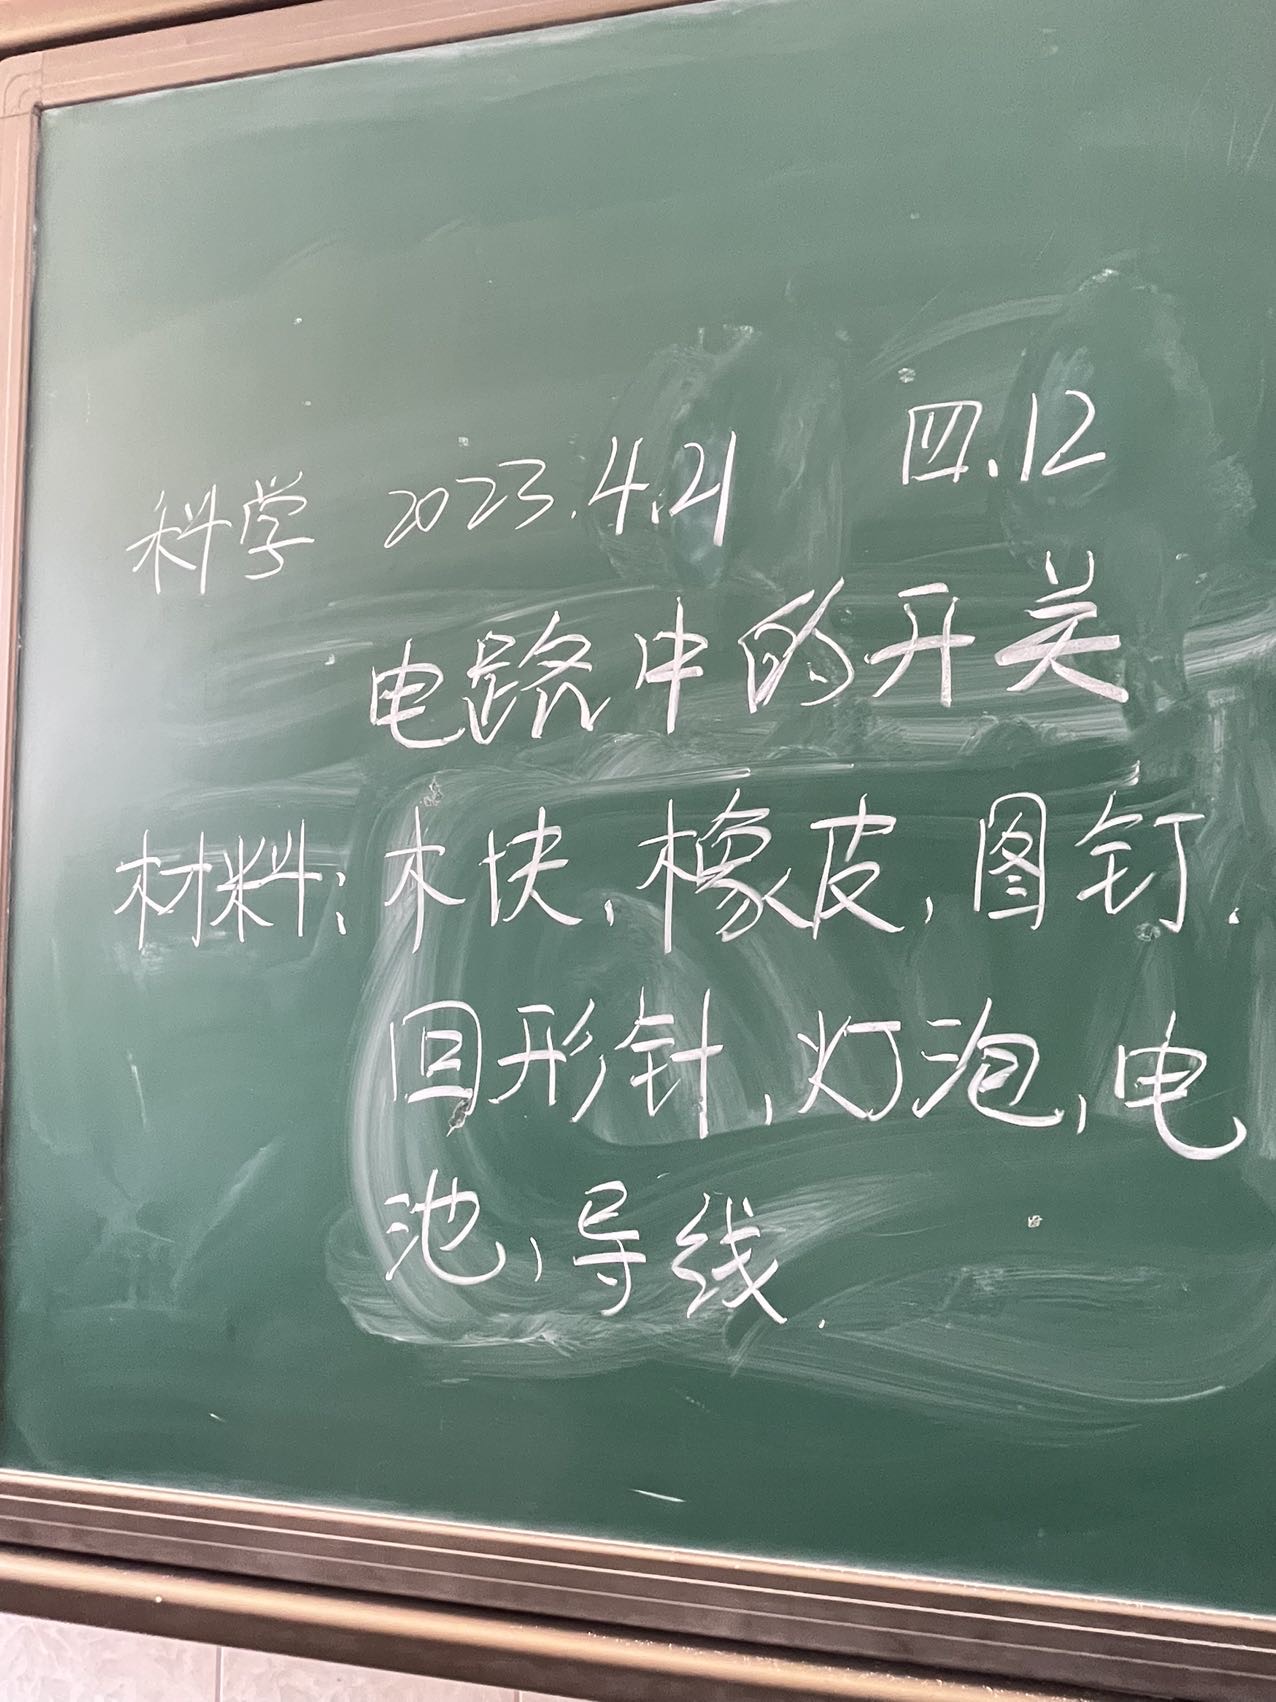 科学 2023.4.21 四.12
电路中的开关
材料:木块,橡皮,图钉.
回形针,灯泡,电
池,导线.